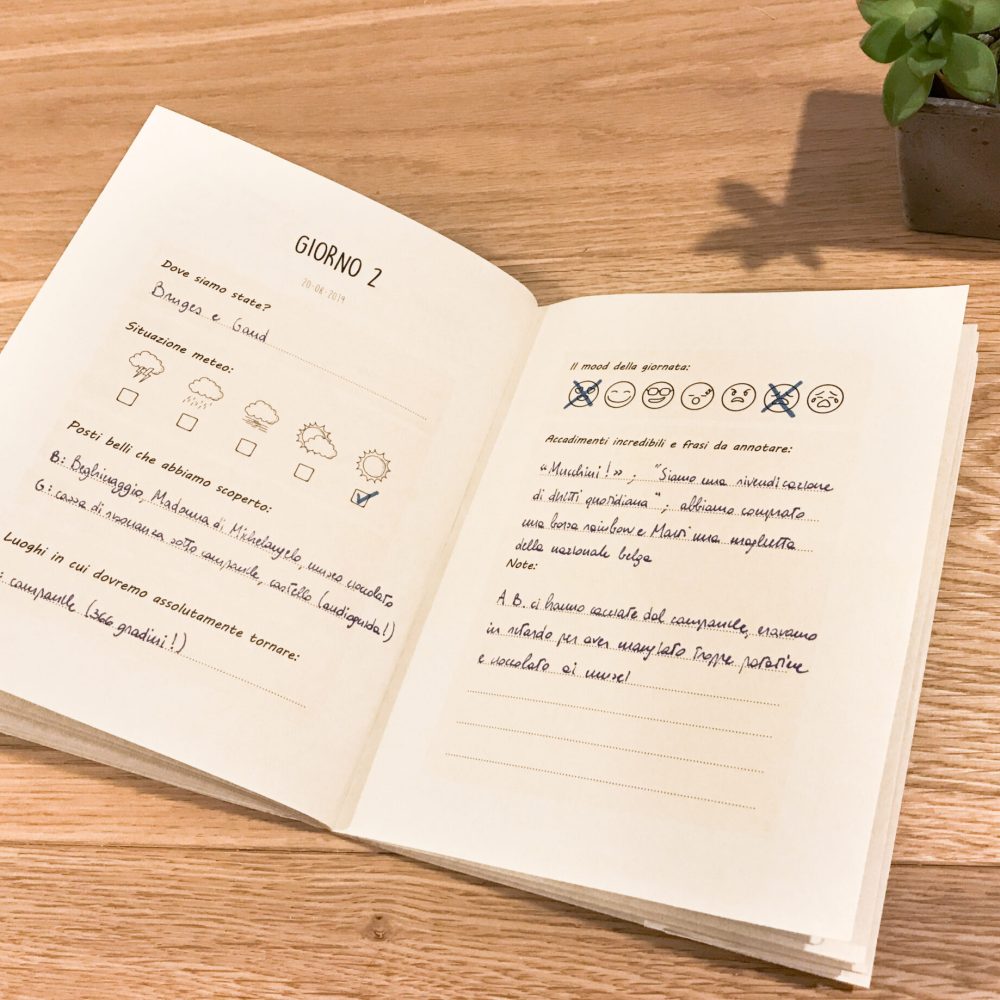 GIORNO 2
20-08-2019
Dove siamo state?
Bruges e Gand
Situazione meteo:
Posti belli che abbiamo scoperto:
B: Beghinaggio, Madonna di Michelangelo, museo cioccolato
G: cassa di risonanza sotto campanile, castello (audioguida!)
Luoghi in cui dovremo assolutamente tornare:
: campanile (366 gradini!)
Il mood della giornata:
Accadimenti incredibili e frasi da annotare:
«Mucchini!» ; "Siamo una rivendicazione
di diritti quotidiana" ; abbiamo comprato
una borsa rainbow e Mavi una maglietta
della nazionale belga
Note:
A B. ci hanno cacciate dal campanile, eravamo
in ritardo per aver mangiato troppe patatine
e cioccolato ai musei